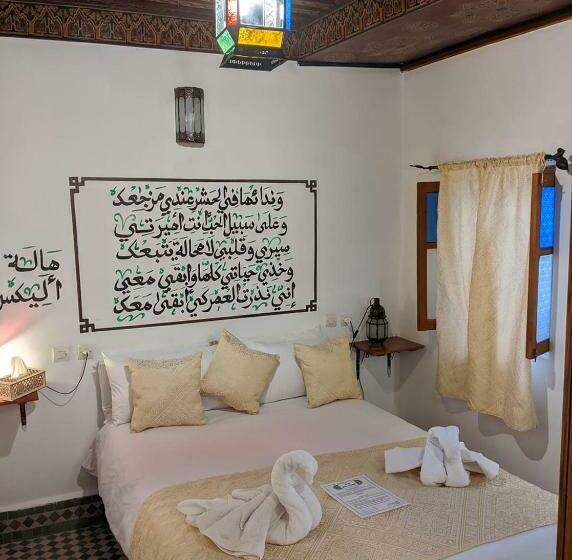 وندائها في الحشر عندي مرجعك
وعلى سبيل الحب أنت أميرتي
سيري وقلبي لا محالة يتبعك
وخذي حياتي كلها وأبقي معي
إني نذرت العمر كي أبقى معك
هالة
أليكس